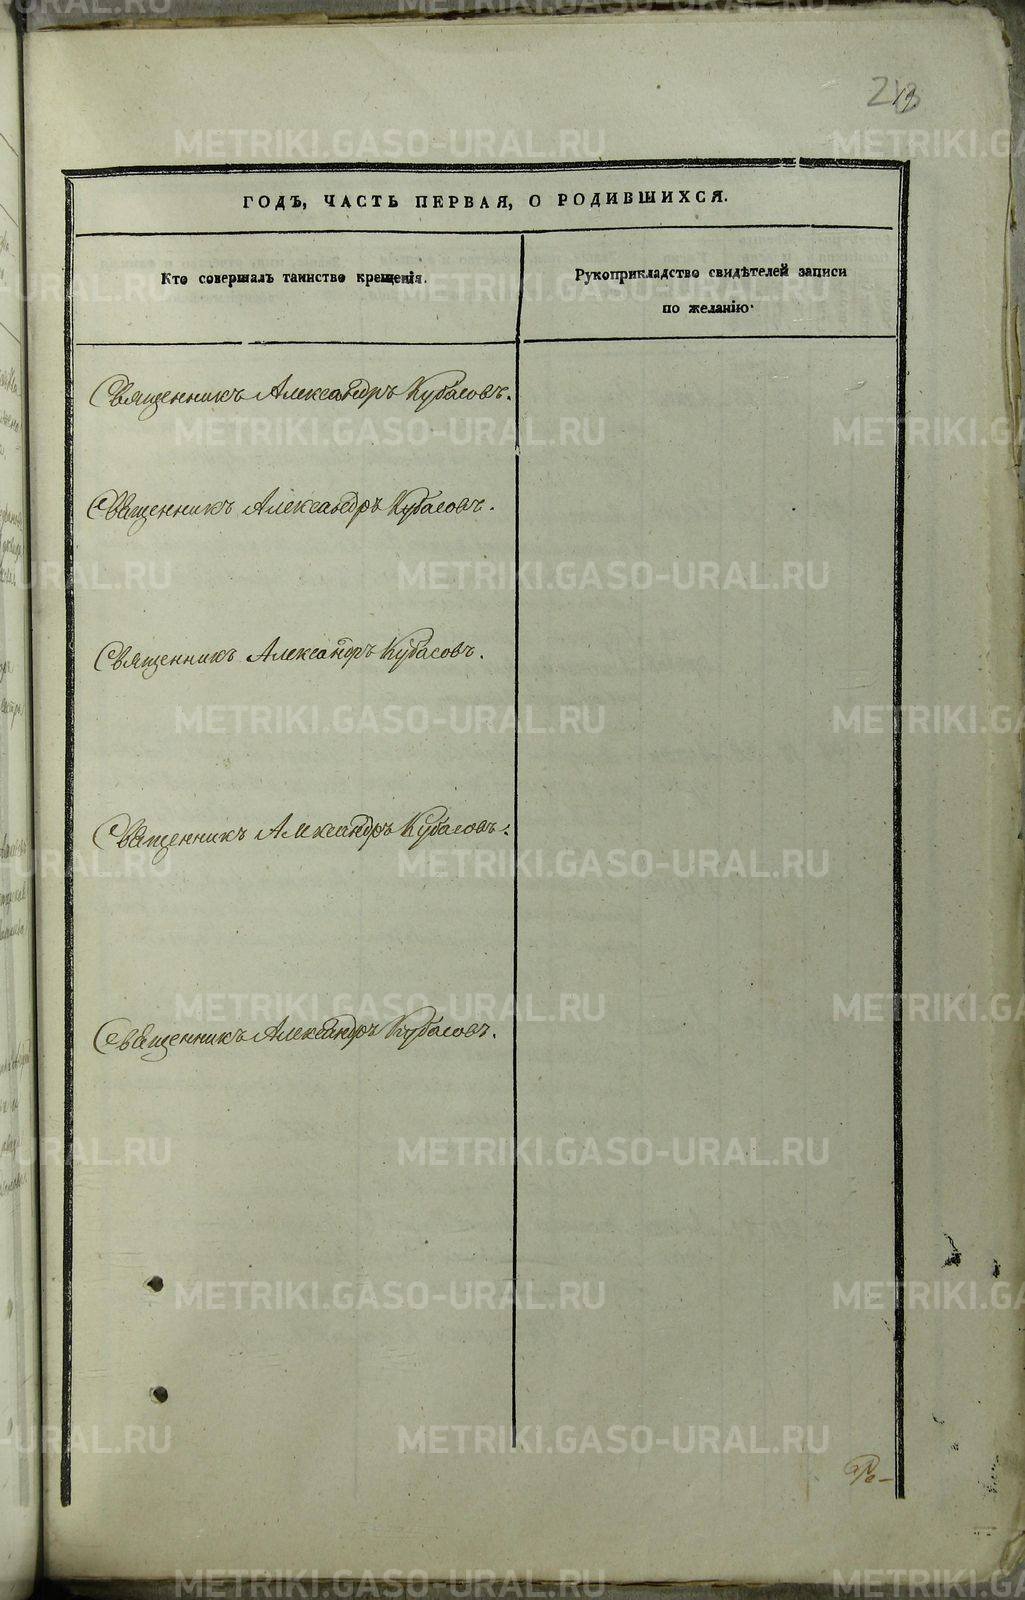 ГОДЪ, ЧАСТЬ ПЕРВАЯ, О РОДИВШИХСЯ.
Кто совершалъ таинство крещенія.
Рукоприкладство свидѣтелей записи
по желанію.
Священникъ Александръ Кубасовъ.
Священникъ Александръ Кубасовъ.
Священникъ Александръ Кубасовъ.
Священникъ Александръ Кубасовъ.
Священникъ Александръ Кубасовъ.
METRIKI.GASO-URAL.RU